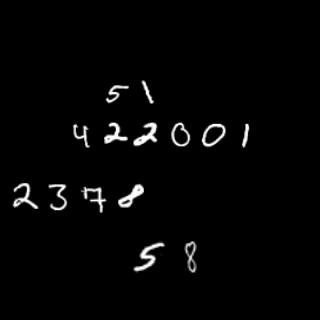 51
422001
2378
58